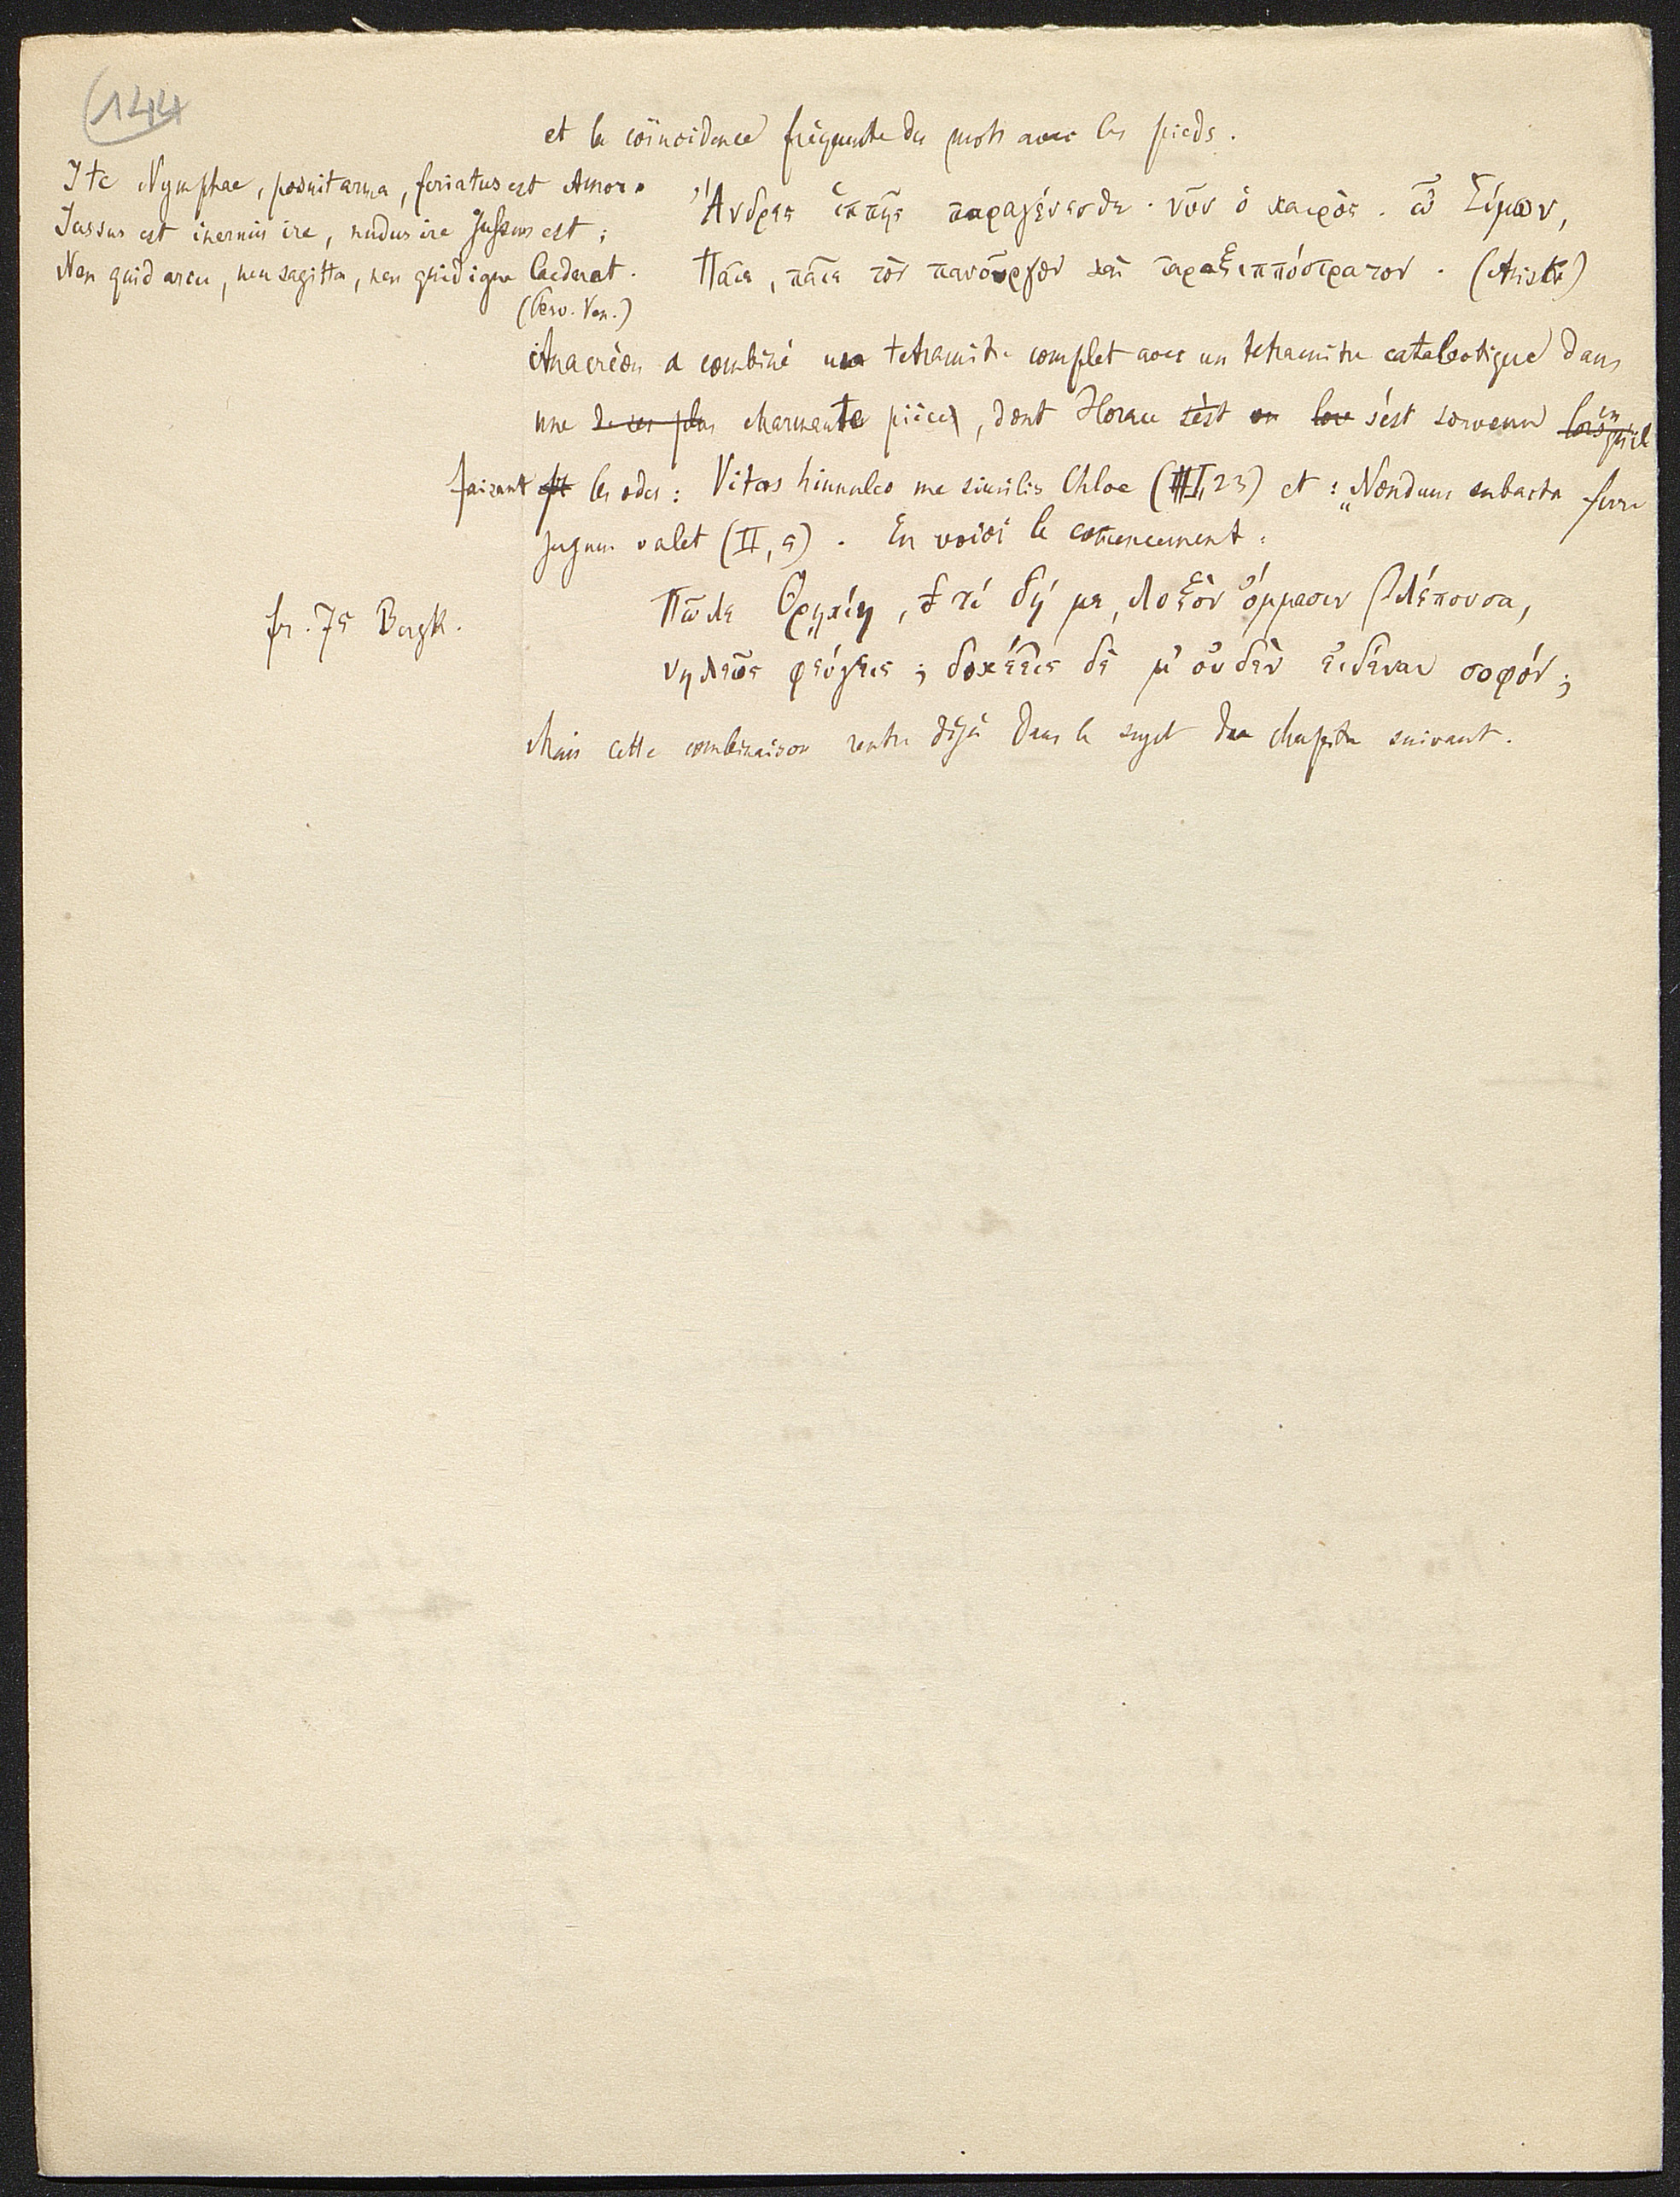 144
et la coïncidence fréquente des mots avec les pieds.
Ite Nymphae, posuit arma, feriatus est Amor.
Jussus est inermis ire, nudus ire jussus est;
Neu quid arcu, neu sagitta, neu quid igne laederet.
(Perv. Ven.)
Ἄνδρες ἱππῆς παραγένεσθε· νῦν ὁ καιρός. ὦ Σίμων,
Παῖε, παῖε τὸν πανοῦργον καὶ ταραξιππόστρατον. (Arist.)
Anacréon a combiné un tétramètre complet avec un tétramètre catalectique dans
une de ses plus charmante pièce, dont Horace s'est en lors s'est souvenu lorsqu'il en
faisant fit les odes: Vitas hinnuleo me similis Chloe (I, 23) et: „Nondum subacta ferre
jugum valet (II, 5). En voici le comencement:
fr. 75 Bergk.
Πῶλε Θρῃκίη, τί δή με, λοξὸν ὄμμασιν βλέπουσα,
νηλεῶς φεύγεις; δοκέεις δέ μ' οὐδὲν εἰδέναι σοφόν;
Mais cette combinaison rentre déjà dans le sujet du chapitre suivant.